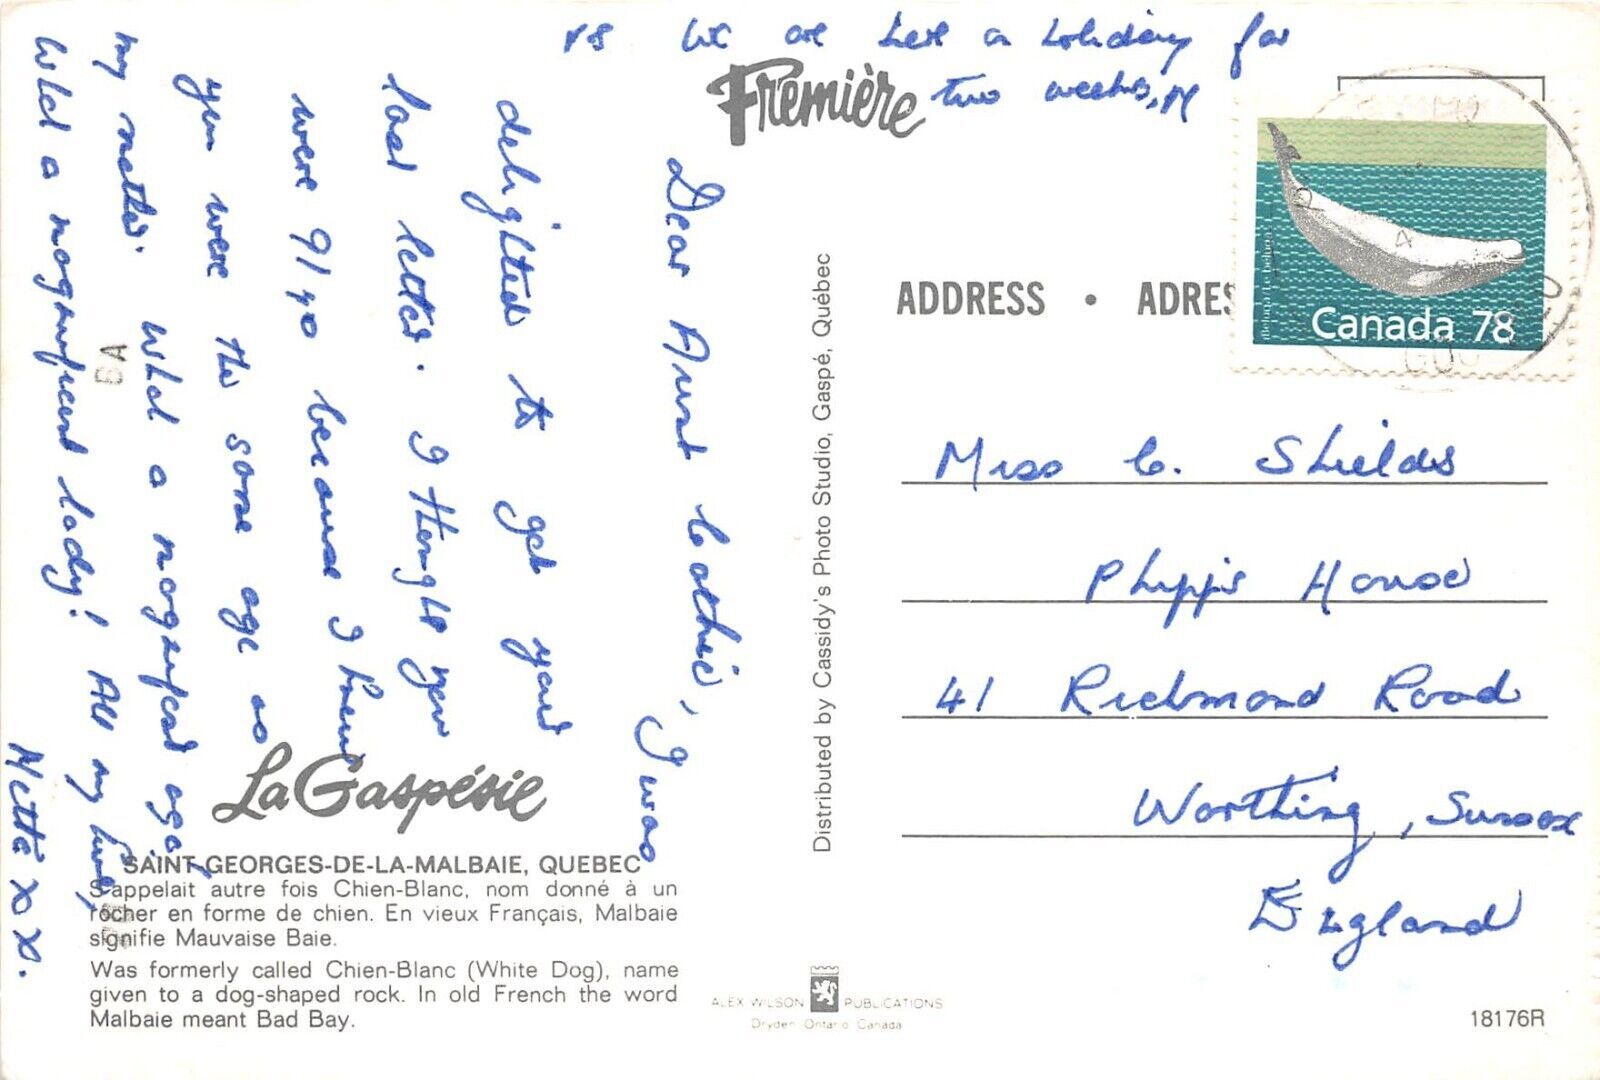 PS We are here on holiday for
two weeks, M
Première
Dear Aunt Cathie, I was
delighted to get your
last letter. I thought you
were 91/90 because I knew
you were the same age as
my mother. What a magnificent age,
What a magnificent lady! All my love,
Mette x x x.
La Gaspésie
SAINT-GEORGES-DE-LA-MALBAIE, QUEBEC
S'appelait autre fois Chien-Blanc, nom donné à un
rocher en forme de chien. En vieux Français, Malbaie
signifie Mauvaise Baie.
Was formerly called Chien-Blanc (White Dog), name
given to a dog-shaped rock. In old French the word
Malbaie meant Bad Bay.
Distributed by Cassidy's Photo Studio, Gaspé, Québec
ALEX WILSON PUBLICATIONS
Dryden Ontario Canada
ADDRESS • ADRES
Canada 78
Miss C. Shields
Phipps House
41 Richmond Road
Worthing, Sussex
England
18176R